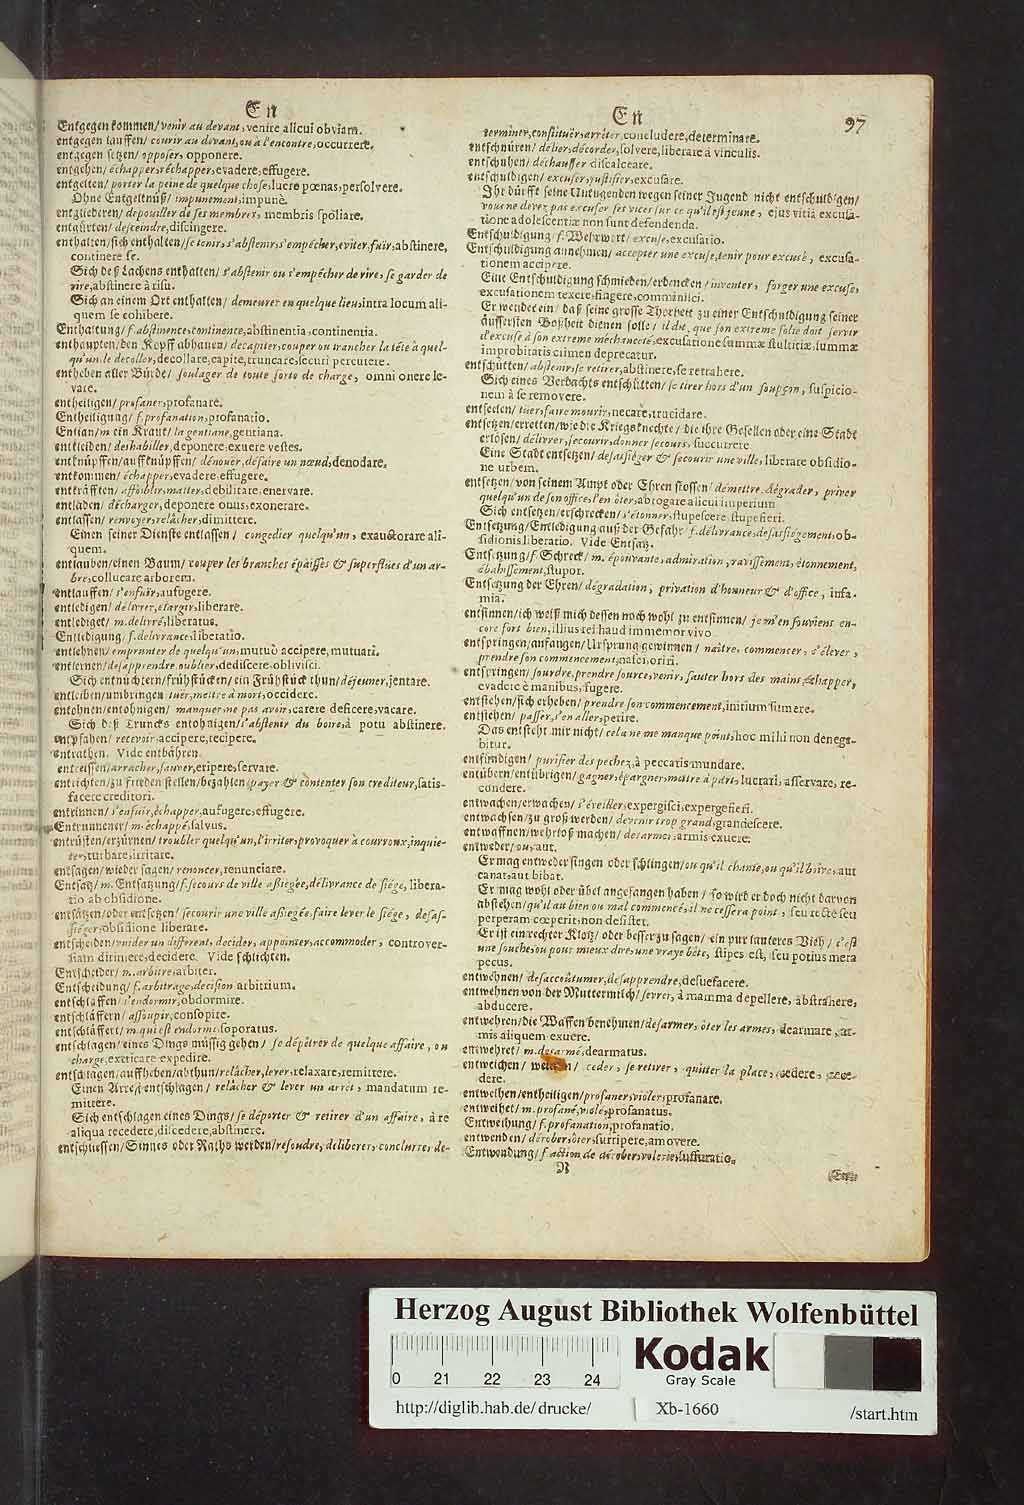 En
Entgegen kommen/ venir au devant, venire alicui obviam.
entgegen lauffen/ courir au devant, ou à l'encontre, occurrere.
entgegen setzen/ opposer, opponere.
entgehen/ échapper, réchapper, evadere, effugere.
entgelten/ porter la peine de quelque chose, luere pœnas, persolvere.
Ohne Entgeltnüß/ impunement, impunè.
entgliederen/ depouiller de ses membres, membris spoliare.
entgürten/ desceindre, discingere.
enthalten/ sich enthalten/ se tenir, s'abstenir, s'empécher, eviter, fuir, abstinere,
continere se.
Sich deß Lachens enthalten/ s'abstenir ou s'empécher de rire, se garder de
rire, abstinere à risu.
Sich an einem Ort enthalten/ demeurer en quelque lieu, intra locum ali-
quem se cohibere.
Enthaltung/ f. abstinence, continence, abstinentia, continentia.
enthaupten/ den Kopff abhauen/ decapiter, couper ou trancher la téte à quel-
qu'un, le decoller, decollare, capite, truncare, securi percutere.
entheben aller Bürde/ soulager de toute sorte de charge, omni onere le-
vare.
entheiligen/ profaner, profanare.
Entheiligung/ f. profanation, profanatio.
Entian/ m ein Kraut/ la gentiane, gentiana.
entkleiden/ deshabiller, deponere, exuere vestes.
entknüpffen/ auffknüpffen/ dénouër, défaire un nœud, denodare.
entkommen/ échapper, evadere, effugere.
entkräfften/ affoiblir, matter, debilitare, enervare.
entladen/ décharger, deponere onus, exonerare.
entlassen/ renvoyer, relácher, dimittere.
Einen seiner Dienste entlassen/ congedier quelqu'un, exauctorare ali-
quem.
entlauben/ einen Baum/ couper les branches épaisses & superflües d'un ar-
bre, collucare arborem.
entlauffen/ s'enfuir, aufugere.
entledigen/ délivrer, élargir, liberare.
entlediget/ m. delivré, liberatus.
Entledigung/ f. delivrance, liberatio.
entlehnen/ emprunter de quelqu'un, mutuò accipere, mutuari.
entlernen/ desapprendre, oublier, dediscere, oblivisci.
Sich entnüchtern/ frühstücken/ ein Frühstück thun/ déjeuner, jentare.
entleiben/ umbringen/ tuër, mettre à mort, occidere.
entohnen/ entohnigen/ manquer, ne pas avoir, carere, deficere, vacare.
Sich deß Truncks entohnigen/ s'abstenir du boire, à potu abstinere.
entpfahen/ recevoir, accipere, recipere.
entrathen. Vide entbähren.
entreissen/ arracher, sauver, eripere, servare.
entrichten/ zu frieden stellen/ bezahlen/ payer & contenter son crediteur, satis-
facere creditori.
entrinnen/ s'enfuir, échapper, aufugere, effugere.
Entrunnener/ m. échappé, salvus.
entrüsten/ erzürnen/ troubler quelqu'un, l'irriter, provoquer à courroux, inquie-
ter, turbare, irritare.
entsagen/ wieder sagen/ renoncer, renunciare.
Entsatz/ m. Entsatzung/ f. secours de ville assiegée, délivrance de siége, libera-
tio ab obsidione.
entsätzen/ oder entsetzen/ secourir une ville assiegée, faire lever le siége, desas-
sieger, obsidione liberare.
entscheiden/ vuider un different, decider, appointer, accommoder, controver-
siam dirimere, decidere. Vide schlichten.
Entscheider/ m. arbitre, arbiter.
Entscheidung/ f. arbitrage, decision, arbitrium.
entschlaffen/ s'endormir, obdormire.
entschläffern/ assoupir, consopire.
entschläffert/ m. qui est endormi, soporatus.
entschlagen/ eines Dings müssig gehen/ se dépétrer de quelque affaire, ou
charge, extricare, expedire.
entschlagen/ auffheben/ abthun/ relácher, lever, relaxare, remittere.
Einen Arrest entschlagen/ relácher & lever un arrét, mandatum re-
mittere.
Sich entschlagen eines Dings/ se déporter & retirer d'un affaire, à re
aliqua recedere, discedere, abstinere.
entschliessen/ Sinnes oder Raths werden/ resoudre, deliberer, conclurre, de-
En
97
terminer, constituër, arréter, concludere, determinare.
entschnüren/ délier, décorder, solvere, liberare à vinculis.
entschuhen/ déchausser, discalceare.
entschuldigen/ excuser, justifier, excusare.
Ihr dürfft seine Untugenden wegen seiner Jugend nicht entschuldigen/
vous ne devez pas excuser ses vices sur ce qu'il est jeune, ejus vitia excusa-
tione adolescentiæ non sunt defendenda.
Entschuldigung/ f. Wehrwort/ excuse, excusatio.
Entschuldigung annehmen/ accepter une excuse, tenir pour excusé, excusa-
tionem accipere.
Eine Entschuldigung schmieden/ erdencken/ inventer, forger une excuse,
excusationem texere, fingere, comminisci.
Er wendet ein/ daß seine grosse Thorheit zu einer Entschuldigung seiner
äussersten Boßheit dienen solle/ il dit, que son extreme folie doit servir
d'excuse à son extreme méchanceté, excusatione summæ stultitiæ, summæ
improbitatis crimen deprecatur.
entschütten/ abstenir, se retirer, abstinere, se retrahere.
Sich eines Verdachts entschütten/ se tirer hors d'un soupçon, suspicio-
nem à se removere.
entseelen/ tüer, faire mourir, necare, trucidare.
entsetzen/ erretten/ wie die Kriegsknechte/ die ihre Gesellen oder eine Stadt
erlösen/ délivrer, secourir, donner secours, succurrere.
Eine Stadt entsetzen/ desassiéger & secourir une ville, liberare obsidio-
ne urbem.
entsetzen/ von seinem Ampt oder Ehren stossen/ démettre, dégrader, priver
quelqu'un de son office, l'en óter, abrogare alicui imperium.
Sich entsetzen/ erschrecken/ s'étonner, stupescere, stupefieri.
Entsetzung/ Entledigung auß der Gefahr/ f. délivrance, desassiégement, ob-
sidionis liberatio. Vide Entsatz.
Entsetzung/ f. Schreck/ m. épouvante, admiration, ravissement, étonnement,
ébahissement, stupor.
Entsetzung der Ehren/ dégradation, privation d'honneur & d'office, infa-
mia.
entsinnen/ ich weiß mich dessen noch wohl zu entsinnen/ je m'en souviens en-
core fort bien, illius rei haud immemor vivo.
entspringen/ anfangen/ Ursprung gewinnen/ naître, commencer, s'élever,
prendre son commencement, nasci, oriri.
entspringen/ sourdre, prendre source, venir, sauter hors des mains, échapper,
evadere è manibus, fugere.
entstehen/ sich erheben/ prendre son commencement, initium sumere.
entstehen/ passer, s'en aller, perire.
Das entsteht mir nicht/ cela ne me manque point, hoc mihi non denega-
bitur.
entsündigen/ purifier des pechez, à peccatis mundare.
entübern/ entübrigen/ gagner, épargner, mettre à part, lucrari, asservare, re-
condere.
entwachen/ erwachen/ s'éveiller, expergisci, expergefieri.
entwachsen/ zu groß werden/ devenir trop grand, grandescere.
entwaffnen/ wehrloß machen/ desarmer, armis exuere.
entweder/ ou, aut.
Er mag entweder singen oder schlingen/ ou qu'il chante, ou qu'il boive, aut
canat, aut bibat.
Er mag wohl oder übel angefangen haben/ so wird er doch nicht darvon
abstehen/ qu'il ait bien ou mal commencé, il ne cessera point, seu rectè seu
perperam cœperit, non desistet.
Er ist ein rechter Klotz/ oder besser zu sagen/ ein pur lauteres Vieh/ c'est
une souche, ou pour mieux dire, une vraye béte, stipes est, seu potius mera
pecus.
entwehnen/ desaccoûtumer, desapprendre, desuefacere.
entwehnen von der Muttermilch/ sevrer, à mamma depellere, abstrahere,
abducere.
entwehren/ die Waffen benehmen/ desarmer, óter les armes, dearmare, ar-
mis aliquem exuere.
entwehret/ m. desarmé, dearmatus.
entweichen/ weichen/ ceder, se retirer, quitter la place, cedere, rece-
dere.
entweihen/ entheiligen/ profaner, violer, profanare.
entweihet/ m. profané, violé, profanatus.
Entweihung/ f. profanation, profanatio.
entwenden/ dérober, óter, surripere, amovere.
Entwendung/ f. action de dérober, volerie, suffuratio.
N
Herzog August Bibliothek Wolfenbüttel
0 21 22 23 24
Kodak
Gray Scale
http://diglib.hab.de/drucke/ Xb-1660 /start.htm